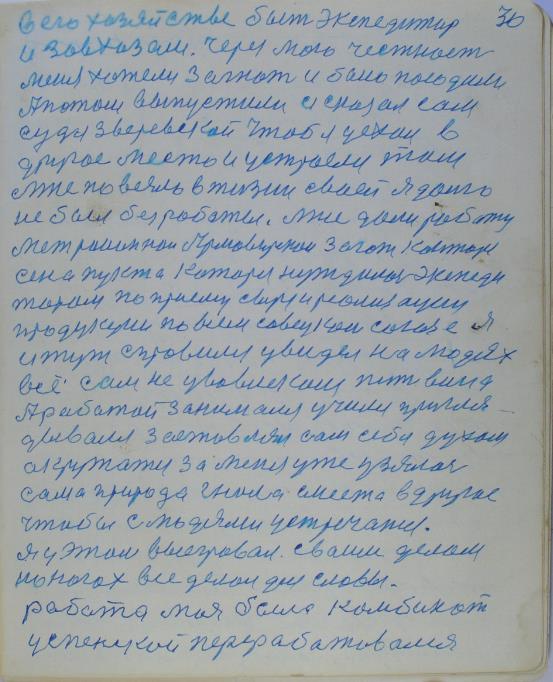 36
в его хозяйстве быт экспедитар
и завхазам. Через мого честност
меня хотели загнат и было посодили
А потом выпустили и сказал сам
судя Зверевской чтоб я уехал в
другое место и устроелся там
мне повезло в жизни своей я долго
не был без работы. мне дали работу
метраванной Армавирской загот контори
сена пукта каторя нуждалас экспеди
тарам по приему сыря и реализацыи
продукцыи по всем совецком союзе я
и тут справился увидел на людях
всё сам не увовлекался пит вина
А работой занимался учился пригля-
дывался заставлял сам себя духом
окружати за меня уже узялас
сама природа гнала с места в другое
чтобы с людями устречатся.
я у этом выегровал. сваим делам
на ногах все делал для славы.
работа моя была комбинат
успенской перерабатовался